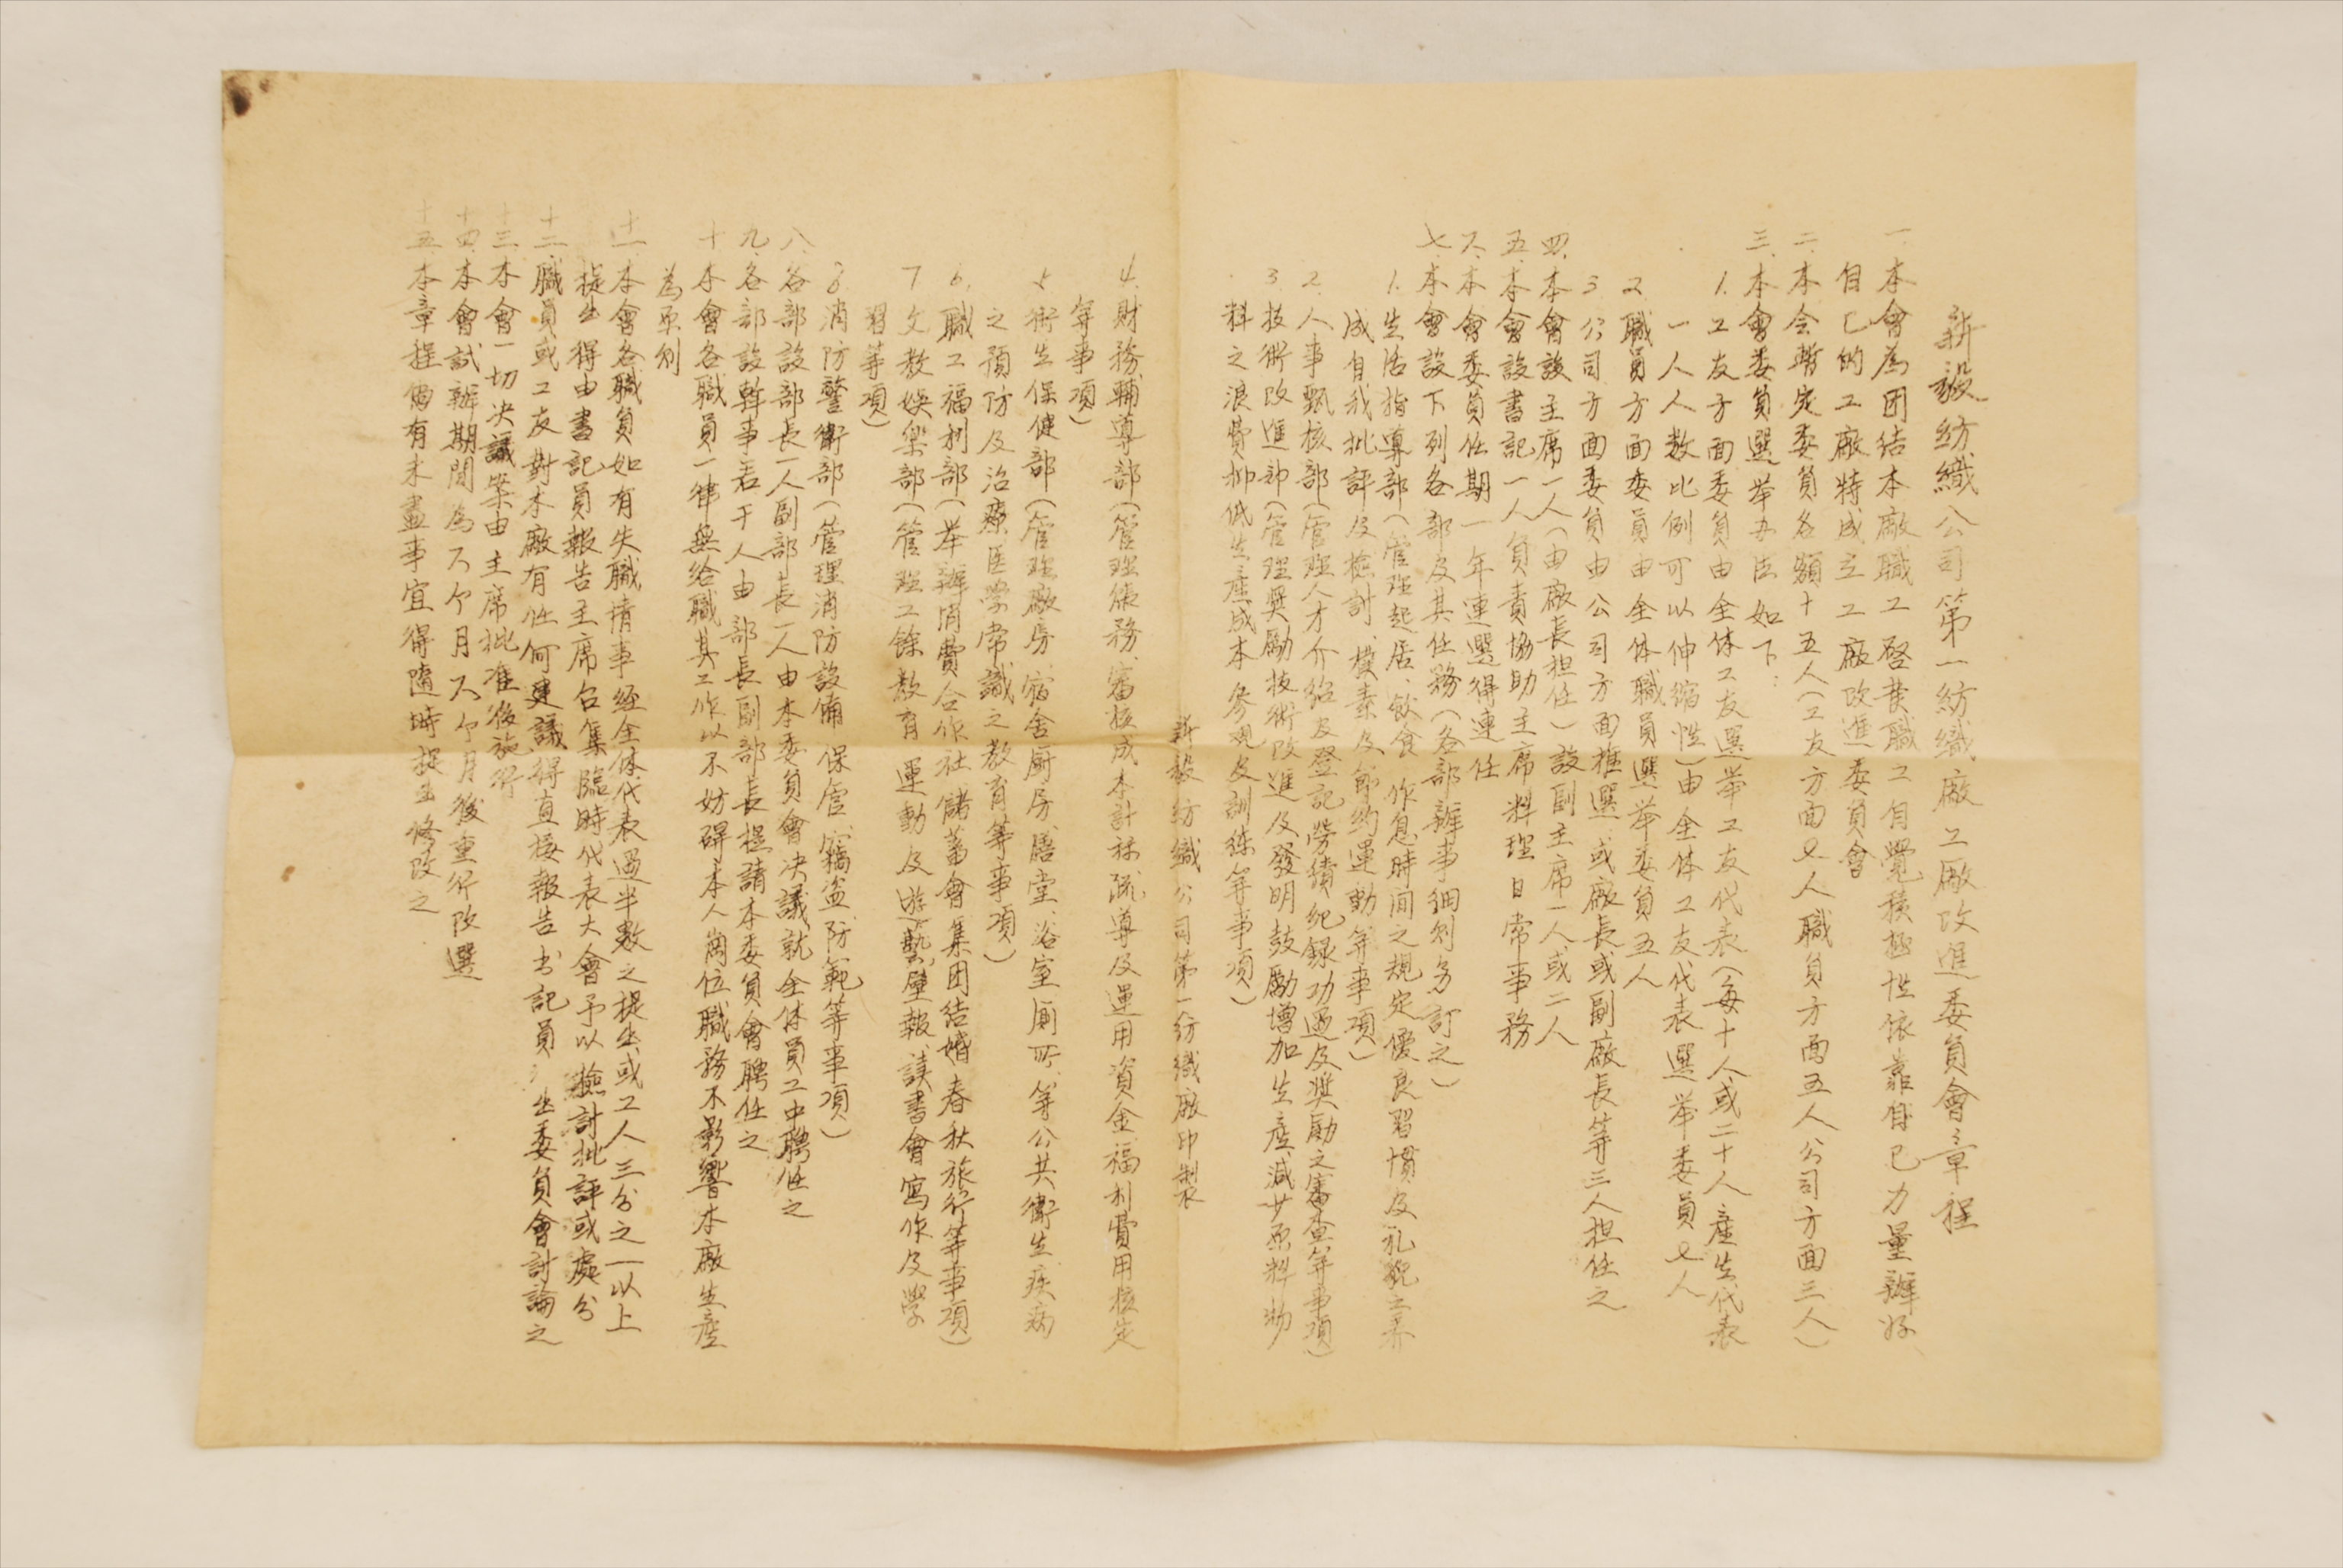 新毅紡織公司第一紡織廠工廠改進委員會章程
一.本會為团结本廠職工啓發職工自覺積極性依靠自己力量辦好
自己的工廠特成立工廠改進委員會
二.本会暫定委員名額十五人(工友方面七人職員方面五人公司方面三人)
三.本會委員選举办法如下:
1.工友方面委員由全体工友選举工友代表(每十人或二十人產生代表
一人人数比例可以伸缩性)由全体工友代表選举委員七人
2.職員方面委員由全体職員選举委員五人
3.公司方面委員由公司方面推選.或廠長或副廠長等三人担任之
四.本會設主席一人(由廠長担任)設副主席一人或二人
五.本會設書記一人負責協助主席料理日常事務
六.本會委員任期一年連選得連任
七.本會設下列各部及其任務(各部辦事細则另訂之)
1.生活指導部(管理起居、飲食、作息時间之規定優良習慣及礼貌之养
成自我批評及檢討、撲素及節約運動等事項)
2.人事甄核部(管理人才介绍及登記勞績纪録功過及奖励之審查等事項)
3.技術改進部(管理奨勵技術改進及發明鼓勵增加生産減少原料物
料之浪費抑低生産成本参观及訓练等事項)
新毅紡織公司第一紡織廠印製
4.財務輔導部(管理賬務、審核成本計祘疏導及運用資金福利費用核定
等事項)
5.衛生保健部(管理廠房、宿舍厨房、膳堂、浴室厠所、等公共衛生、疾病
之預防及治療医學常識之教育等事項)
6.職工福利部(举辦消費合作社儲蓄會集团结婚春秋旅行等事項)
7.文教娱樂部(管理工餘教育運動及遊藝、壁報、讀書會寫作及學
習等項)
8.消防警衛部(管理消防設俻保管、竊盗、防範等事項)
八.各部設部長一人副部長一人由本委員會决議就全体員工中聘任之
九.各部設幹事若干人由部長副部長提請本委員會聘任之
十.本會各職員一律無给職其工作以不妨碍本人崗位職務不影響本廠生産
為原则
十一.本會各職員如有失職情事经全体代表過半数之提出或工人三分之一以上
提出得由書記員報告主席召集臨時代表大會予以檢討批評或處分
十二.職員或工友對本廠有任何建議得直接報告书記員提出委員會討論之
十三.本會一切决議案由主席批准後施行
十四.本會試辦期間為六个月六个月後重行改選
十五.本章程倘有未盡事宜得隨時提出修改之